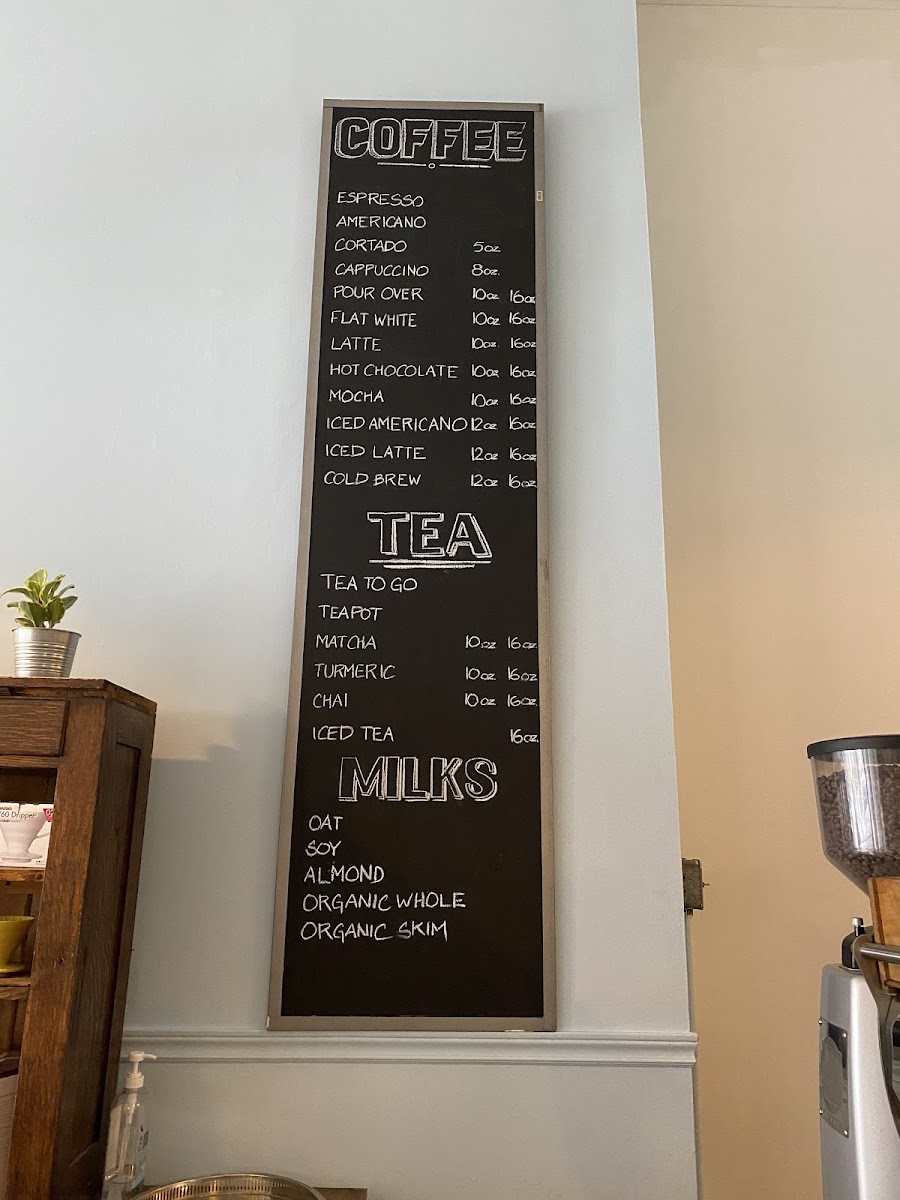 COFFEE
ESPRESSO
AMERICANO
CORTADO 5oz
CAPPUCCINO 8oz.
POUR OVER 10oz 16oz
FLAT WHITE 10oz 16oz
LATTE 10oz. 16oz
HOT CHOCOLATE 10oz 16oz
MOCHA 10oz 16oz
ICED AMERICANO 12oz 16oz
ICED LATTE 12oz 16oz
COLD BREW 12oz 16oz
TEA
TEA TO GO
TEAPOT
MATCHA 10oz 16oz
TURMERIC 10oz 16oz
CHAI 10oz 16oz.
ICED TEA 16oz.
MILKS
OAT
SOY
ALMOND
ORGANIC WHOLE
ORGANIC SKIM
60 Dripper